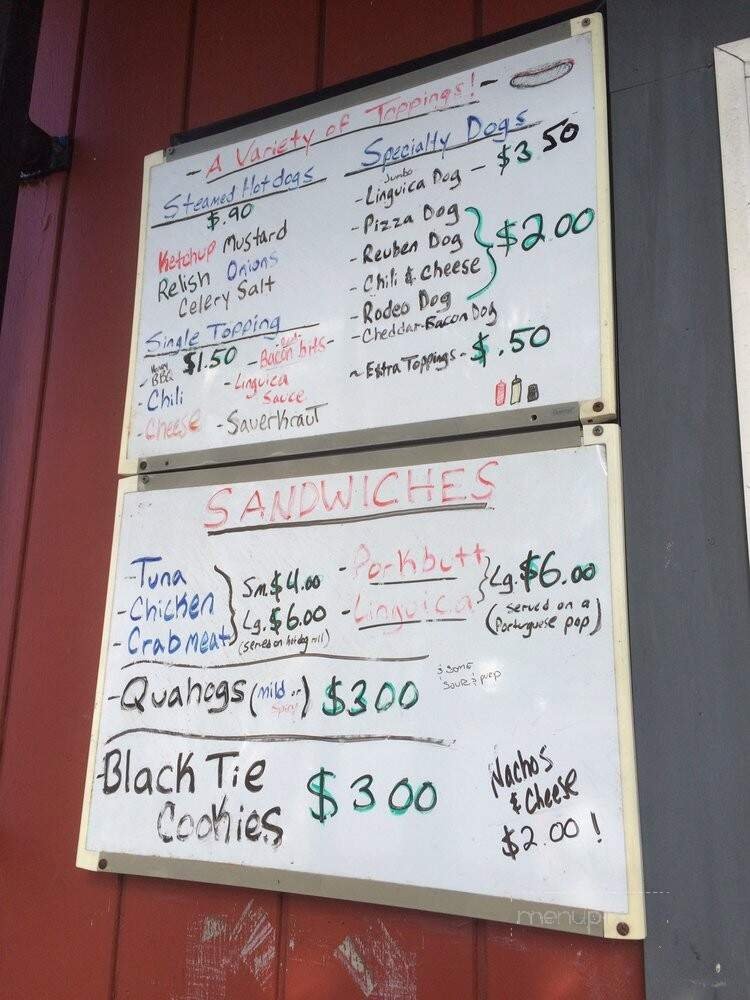 - A Variety of Toppings! -
Steamed Hotdogs
$.90
Ketchup Mustard
Relish Onions
Celery Salt
Single Topping
$1.50
- Honey BBQ
- Chili
- Cheese
- Bacon bits -
- Linguica Sauce
- Sauerkraut
Specialty Dogs
Jumbo
- Linguica Dog - $3.50
- Pizza Dog
- Reuben Dog
- Chili & Cheese
- Rodeo Dog
$2.00
- Cheddar-Bacon Dog
~ Extra Toppings - $.50
SANDWICHES
- Tuna
- Chicken
- Crabmeat
Sm $4.00
Lg. $6.00
(served on hotdog roll)
- Porkbutt
- Linguica
Lg. $6.00
(served on a
Portuguese pop)
- Quahogs (mild or Spicy) $3.00
- Black Tie
Cookies
$3.00
Nachos
& Cheese
$2.00!